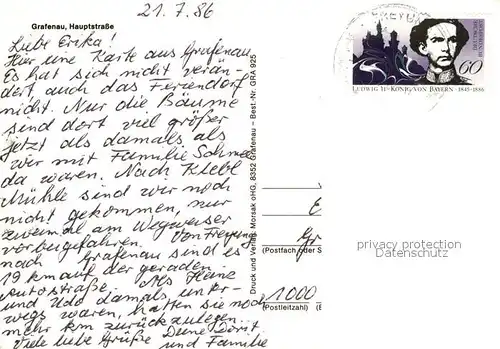 21.7.86
Grafenau, Hauptstraße
Liebe Erika!
Hier eine Karte aus Grafenau.
Es hat sich nicht verän-
dert auch das Feriendorf
nicht. Nur die Bäume
sind dort viel größer
jetzt als damals als
wir mit Familie
da waren. Nach Klebl
Mühle sind wir noch
nicht gekommen, nur
zweimal am Wegweiser
vorbeigefahren. Von Freyung
nach Grafenau sind es
19 km auf der geraden
Autostraße. Als Heine
und Udo damals unter-
wegs waren, hatten sie noch
mehr km zurückzulegen.
Viele liebe Grüße Deine Dorit
und Familie
Druck und Verlag Morsak oHG, 8352 Grafenau – Best.-Nr. GRA 925
FREYUNG
DEUTSCHE
60
LUDWIG II · KÖNIG VON BAYERN · 1845-1886
(Postfach oder S
1000
(Postleitzahl)
privacy protection
Datenschutz